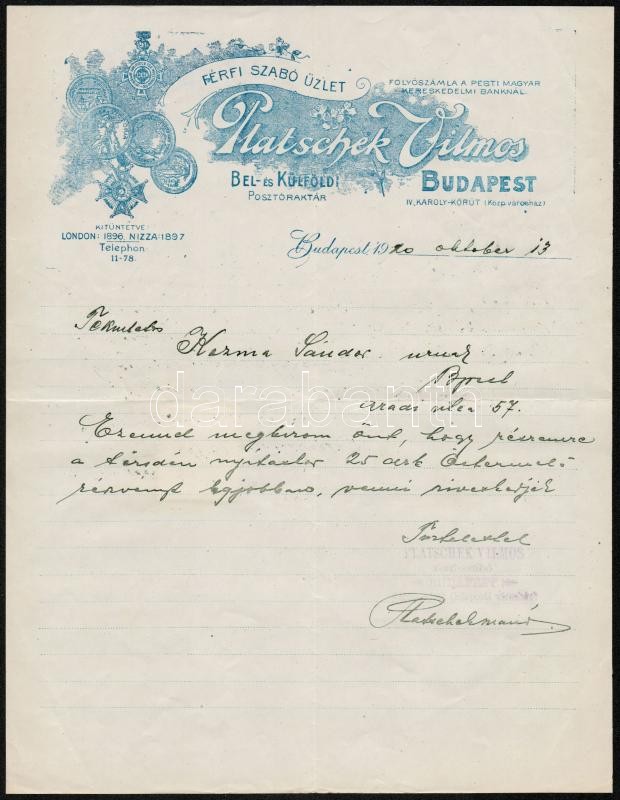 FÉRFI SZABÓ ÜZLET
FOLYÓSZÁMLA A PESTI MAGYAR
KERESKEDELMI BANKNÁL.
Platschek Vilmos
BEL- ÉS KÜLFÖLDI
POSZTÓRAKTÁR
BUDAPEST
IV, KÁROLY-KÖRÚT (Közp. városház)
KITÜNTETVE:
LONDON: 1896, NIZZA: 1897
Telephon
11-78.
Budapest, 1910 oktober 13
Tekintetes
Kozma Sándor urnak
Bpest
Aradi utca 57.
Ezennel megbizom önt, hogy részemre
a tőzsdén nyitáskor 25 drb
részvényt legjobban, venni sziveskedjék
Tisztelettel
PLATSCHEK VILMOS
BUDAPEST
darabanth